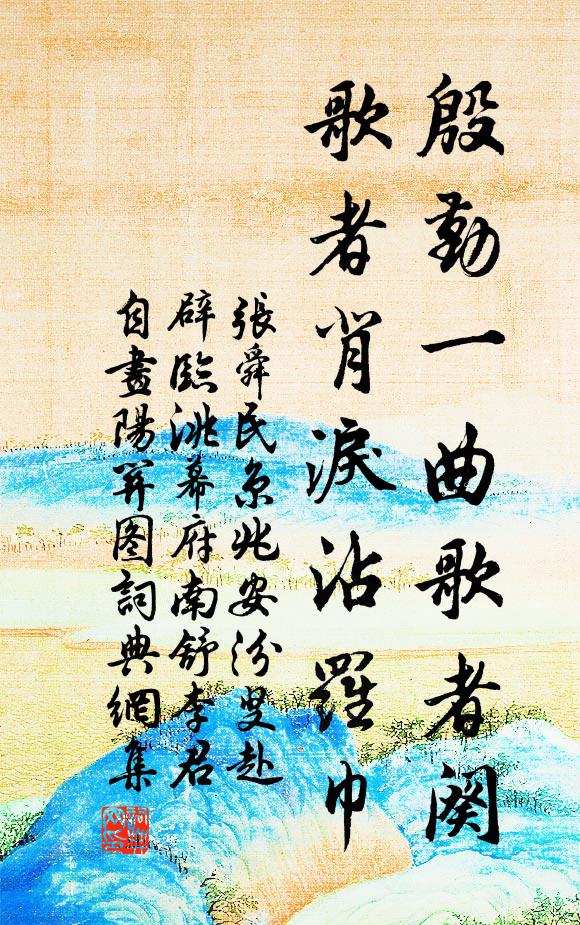 殷勤一曲歌者闋
歌者背淚沾羅巾
張舜民京兆安汾叟赴
辟臨洮幕府南舒李君
自畫陽關圖詞典網集